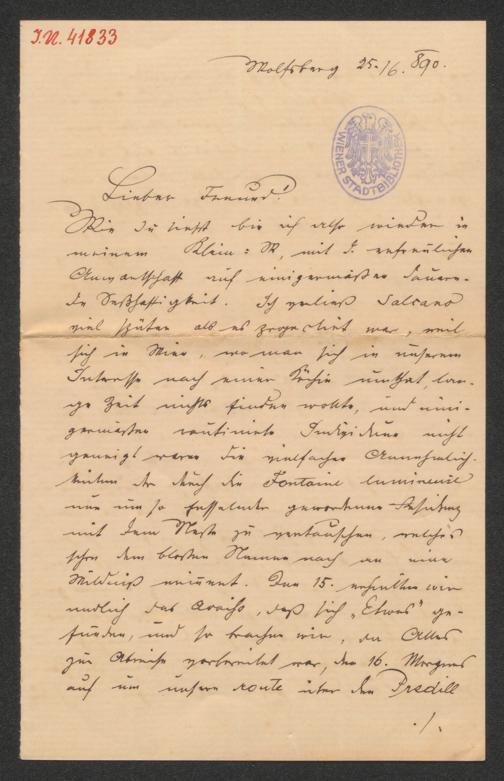 I.N. 41833
Wolfsberg 25./6. 890.
WIENER STADTBIBLIOTHEK
Lieber Freund!
Wie du siehst bin ich also wieder in
meinem Klein=W, mit d. erfreulichen
Anwartschaft auf einigermaßen dauern-
de Seßhaftigkeit. Ich verließ Salcano
viel später als es projectirt war, weil
sich in Wien, wo man sich in unserem
Interesse nach einer Köchin umthat, lan-
ge Zeit nichts finden wollte, und eini-
germaßen routinirte Individuen nicht
geneigt waren die vielfachen Annehmlich-
keiten der durch die Fontaine lumineuse
nur um so fesselnder gewordenen Residenz
mit dem Neste zu vertauschen, welches
schon dem bloßen Namen nach an eine
Wildniß erinnert. Den 15. erhielten wir
endlich das Aviso, daß sich „Etwas" ge-
funden, und so brachen wir, da Alles
zur Abreise vorbereitet war, den 16. Morgens
auf um unsere route über den Predill
./.